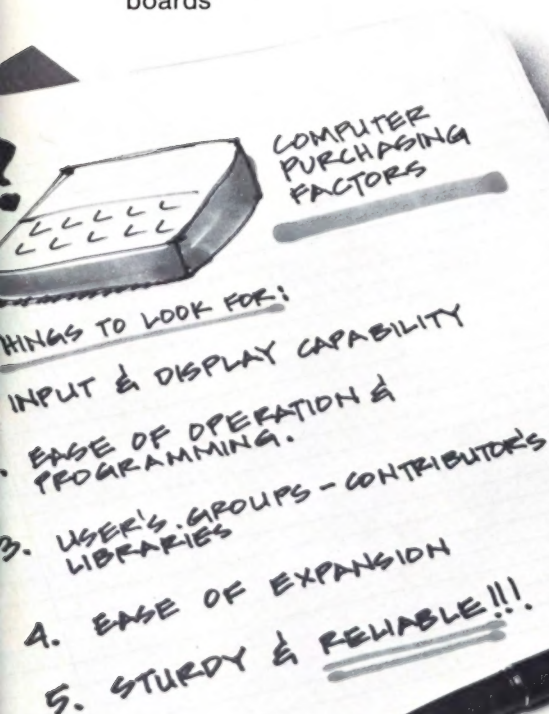 boards
?
COMPUTER
PURCHASING
FACTORS
HINGS TO LOOK FOR:
INPUT & DISPLAY CAPABILITY
. EASE OF OPERATION &
PROGRAMMING.
3. USER'S.GROUPS - CONTRIBUTOR'S
LIBRARIES
4. EASE OF EXPANSION
5. STURDY & RELIABLE!!!.